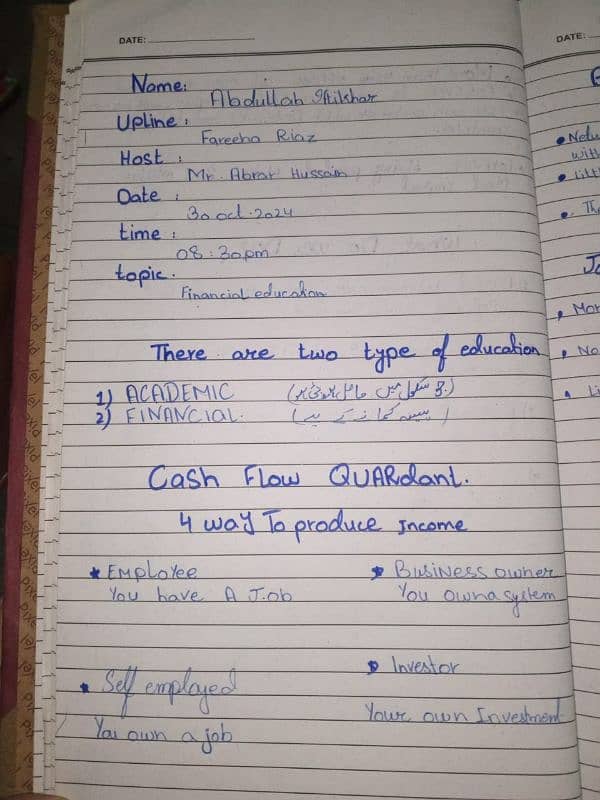 DATE:
Name:
Abdullah Iftikhar
Upline :
Fareeha Riaz
Host :
Mr. Abrar Hussain
Date :
30 oct. 2024
time :
08 : 30pm
topic .
Financial education
There are two type of education
1) ACADEMIC (جو سکول میں حاصل ہوتی ہے)
2) FINANCIAL. (پیسہ کمانے کے لیے)
Cash Flow QUARdant.
4 way To produce Income
* EMPloYee
You have A Job
Self employed
You own a job
BUSiNESS owner
You own a system
Investor
Your own Investment
DATE:
Netw
with
Litt
Th
Mor
No
Li